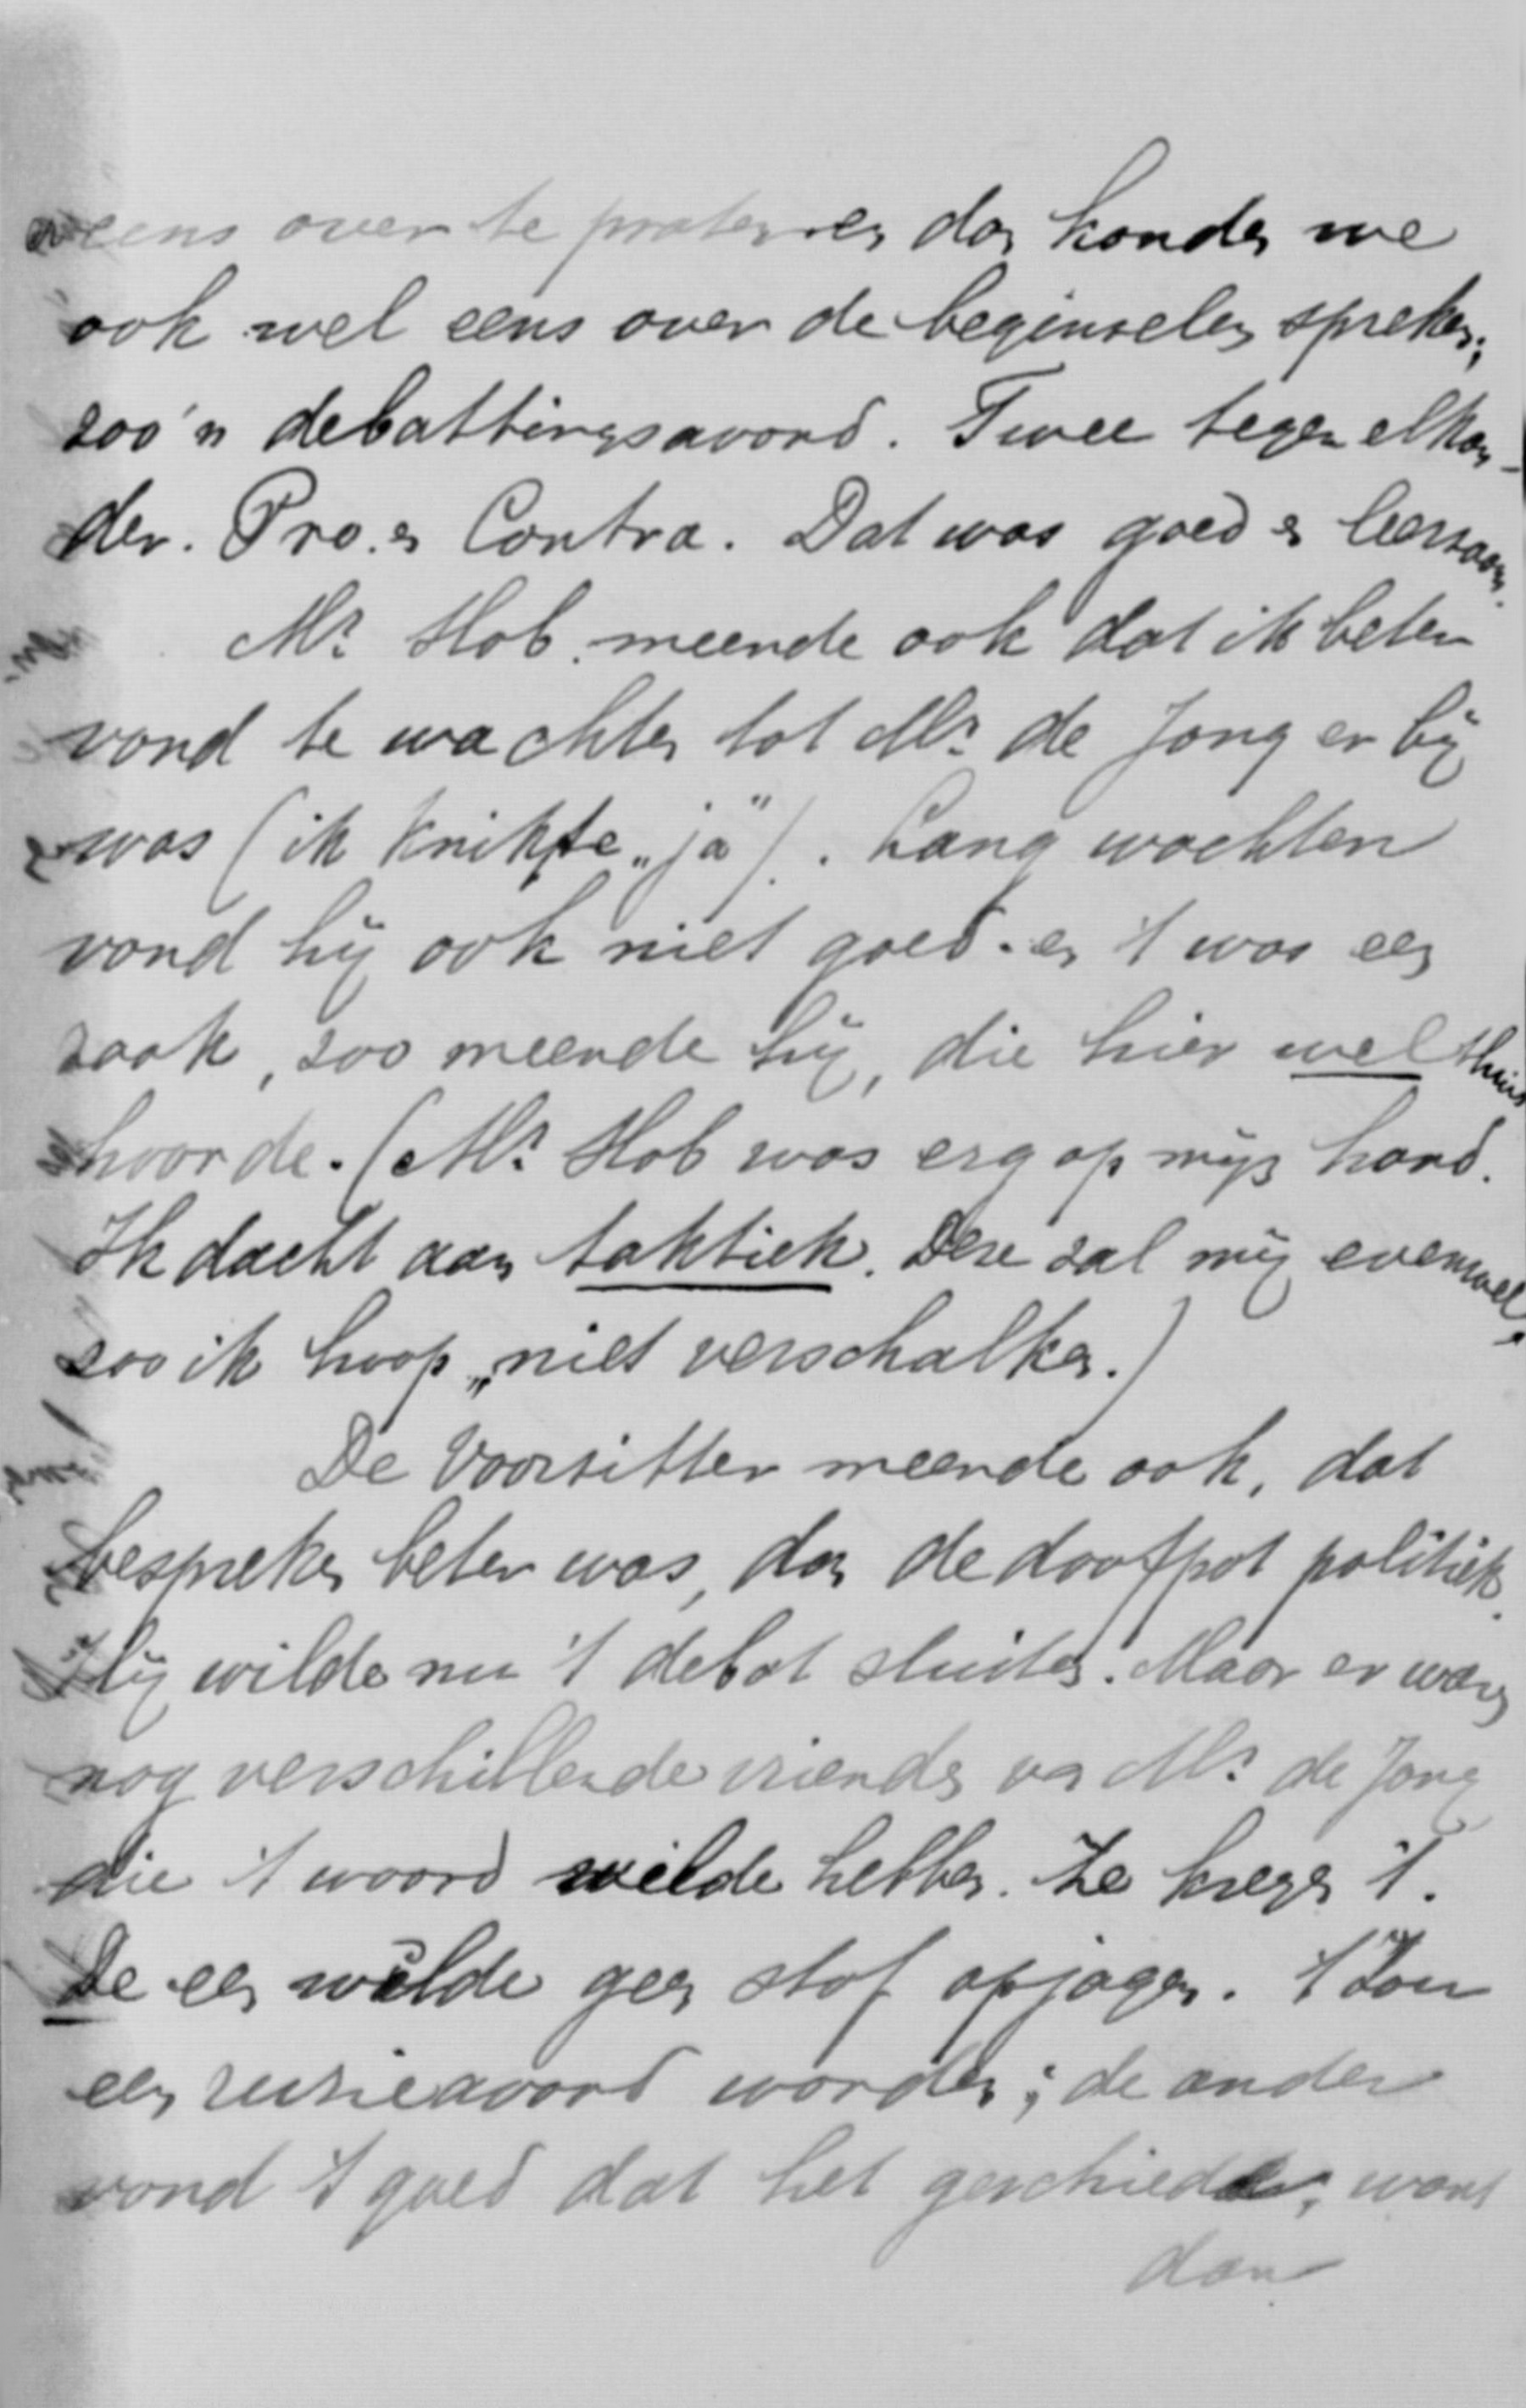 eens over te praten en dan konden we
ook wel eens over de beginselen spreken;
zoo'n debattingsavond. Twee tegen elkan-
der. Pro. en Contra. Dat was goed en leerzaam.
Mr. Hob. meende ook dat ik beter
vond te wachten tot Mr. de Jong er bij
was (ik knikte „ja"). Lang wachten
vond hij ook niet goed. en 't was een
zaak, zoo meende hij, die hier wel thuis
hoorde. (Mr. Hob was erg op mijn hand.
Ik dacht aan taktiek. Deze zal mij evenwel,
zoo ik hoop, niet verschalken.)
De Voorzitter meende ook, dat
bespreken beter was, dan de doofpot politiek.
Hij wilde nu 't debat sluiten. Maar er waren
nog verschillende vrienden van Mr. de Jong
die 't woord wilde hebben. Ze kregen 't.
De een wilde geen stof opjagen. 't Zou
een ruzieavond worden; de ander
vond 't goed dat het geschiedde, want
dan